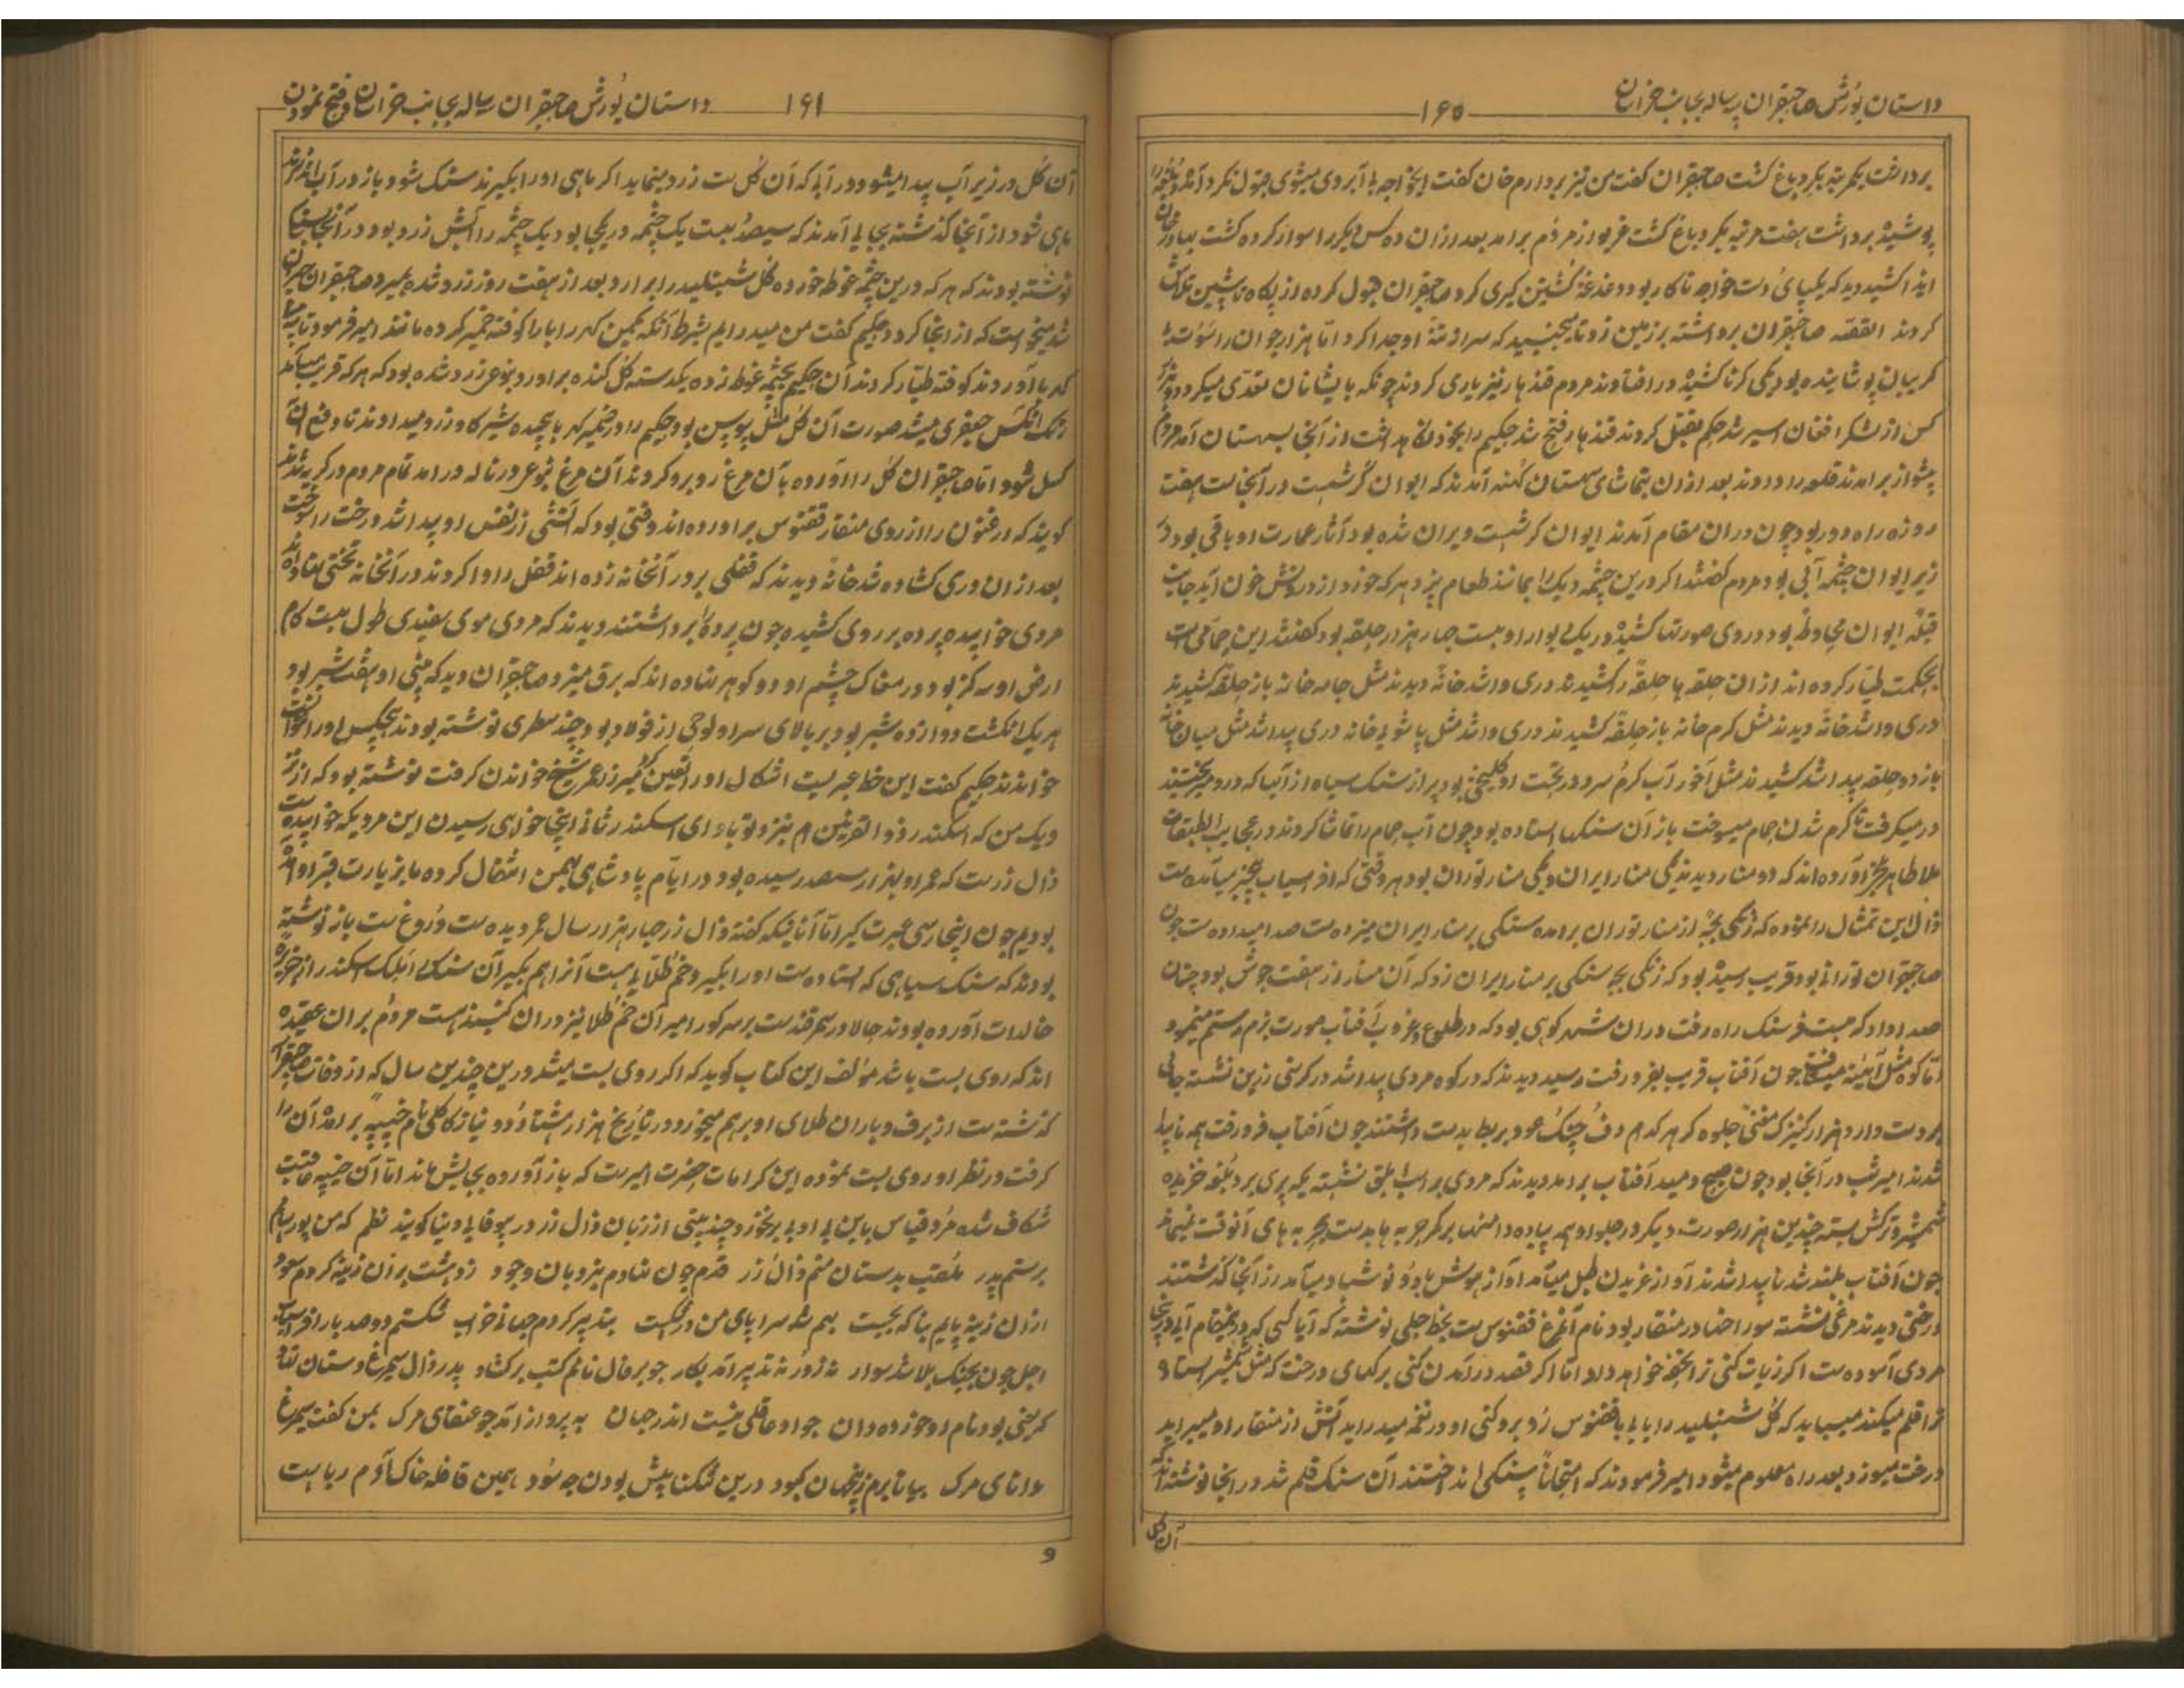 داستان یورش صاحبقران سپاله بجانب خراسان
۱۶۰
برداشت یکمرتبه بگرد باغ گشت صاحبقران گفت من نیز بردارم خان گفت ایخواجه بی آبروی میشوی قبول نکرد آمد
پوشیده برداشت هفت مرتبه بگرد باغ گشت غریو از مردم برآمد بعد ازان ده کس دیگر را سوار کرده گشت
ایذا کشید دید که یکپای دست خواجه ناکار بود دغدغه کشتن گیری کرد صاحبقران قبول کرده از پگاه تا پیشین تلاش
کردند القصه صاحبقران برداشته بر زمین زد تا میجنبید که سر از تنهٔ او جدا کرد اما هزار جوان را
گریبان پوشانیده بود یکی کرنا کشیده در افتادند مردم قندهار نیز یاری کردند چونکه بایشانان تعدی میکرد
کس از لشکر افغان اسیر شد حکم بقتل کردند قندهار فتح شد حکیم را بخود نگاهداشت از آنجا بسیستان آمد مردم
پیشواز برآمدند قلعه را دادند بعد ازان بتماشای سیستان کهنه آمدند که ایوان گرشسب در آنجاست هفت
روزه راه دور بود چون دران مقام آمدند ایوان گرشسب ویران شده بود آثار عمارت او باقی بود در
زیر ایوان چشمه آبی بود مردم گفتند اگر درین چشمه دیگ را بمانند طعام پزد هرکه خورد از درونش خون آید جانب
قبلهٔ ایوان محاوطه بود در روی صورتها کشیده در یک دیوار او بیست چهار هزار حلقه بود گفتند این حمامی است
بحکمت طیار کرده اند ازان حلقه ها حلقهٔ را کشیدند دری وا شد خانهٔ دیدند مثل جامه خانه باز حلقه کشیدند
دری وا شد خانهٔ دیدند مثل گرم خانه باز حلقهٔ کشیدند دری وا شد مثل پاشویه خانه دری پیدا شد مثل میان خانه
باز دو حلقه پیدا شد کشیدند مثل آخور آب گرم سرد در تحت او گلخنی بود پر از سنگ سیاه از آنها که درو میریختند
در میگرفت تا گرم شدن حمام میسوخت باز آن سنگها استاده بود چون آب حمام را تماشا کردند در عجایب الطبقات
ملا طاهر آورده اند که دو منار دیدند یکی منار ایران و یکی منار توران بود هر وقتی که افراسیاب می آمده است
زال این تمثال را نموده که زنگی بچهٔ از منار توران برآمده سنگی بر منار ایران میزده است صدا میداده است چون
صاحبقران تورانی بود قریب رسیده بود که زنگی بچه سنگی بر منار ایران زد که آن منار از هفت جوش بود چنان
صدا داد که بیست فرسنگ راه رفت دران شهر کوهی بود که در طلوع و غروب آفتاب صورت بزم رستم مینمود
اما کوه مثل آیینه میتافت چون آفتاب قریب بفرو رفت رسید دیدند که در کوه مردی پیدا شد در کرسی زرین نشسته جامی
در دست دارد هزار کنیزک مغنی جلوه گر هر کدام دف و چنگ عود بربط بدست داشتند چون آفتاب فرو رفت همه ناپیدا
شدند امیر شب در آنجا بود چون صبح دمید آفتاب برآمد دیدند که مردی بر اسب ابلق نشسته
شمشیر و ترکش بسته چندین هزار صورت دیگر در جلو او همه پیاده دامنها بر کمر حربه ها بدست
چون آفتاب بلند شد ناپیدا شدند آواز غریدن طبل می آمد آواز نوشباد می آمد از آنجا گذشتند
درختی دیدند مرغی نشسته سوراخها در منقار بود نام آنمرغ ققنوس است بخط جلی نوشته که آیا کسی که درین مقام آیی درینجا
مردی آسوده است اگر زیارت کنی ترا تحفه خواهد داد اما اگر قصد درآمدن کنی برگهای درخت که مثل شمشیر استاده
ترا قلم میکند میباید که گل شنبلید را بیابی با ققنوس روبرو کنی او در نغمه میدراید آتش از منقار او میبراید
درخت میسوزد بعد راه معلوم میشود امیر فرمودند که امتحاناً سنگی انداختند آن سنگ قلم شد در اینجا نوشته اند که
آن گل
داستان یورش صاحبقران سپاله بجانب خراسان و فتح نمودن
۱۶۱
آن گل در زیر آب پیدا میشود در آبی که آن گل است زرد مینماید اگر ماهی او را بگیرند سنگ شود باز در آب اندازند
ماهی شود از آنجا گذشته بجایی آمدند که سیصد بیست یک چشمه در یکجا بود یک چشمه را آبش زرد بود در آنجا
نوشته بودند که هر که درین چشمه غوطه خورده گل شنبلید را برآرد بعد از هفت روز زرد شده بمیرد صاحبقران حیران
شد میخواست که از آنجا گردد حکیم گفت من میدرایم بشرط آنکه کهربا را کوفته خمیر کرده مانند امیر فرمود تا
کهربا آوردند کوفته طیار کردند آن حکیم بچشمه غوطه زده یکدسته گل کنده برآورد بنوعی زرد شده بود که هر که قریب میآمد
رنگ آنکس جعفری میشد صورت آن گل مثل بود حکیم را در خمیر کهربا پیچیده شیر گاو زرد میدادند تا دفع آن
کسل شود اما صاحبقران گل را آورده بآن مرغ روبرو کردند آن مرغ بنوعی در ناله درآمد تمام مردم در گریه شدند
گویند که ارغنون را از روی منقار ققنوس برآورده اند وقتی بود که آتشی از نفس او پیدا شد درخت را سوخت
بعد ازان دری گشاده شد خانهٔ دیدند که قفلی بر در آنخانه زده اند قفل را وا کردند در آنخانه تختی نهاده اند
مردی خوابیده پرده بر روی کشیده چون پرده را برداشتند دیدند که مردی موی سفیدی طول بیست گام
ارض او سه گز بود در مغاک چشم او دو گوهر نهاده اند که برق میزد صاحبقران دید که بینی او هفت شبر بود
هر یک انگشت دوازده شبر بود بر بالای سر او لوحی از فولاد بود چند سطری نوشته بودند هیچکس او را نتوانست
خواندند حکیم گفت این خط عبریست اشکال او را تعیین شیخ خواندن گرفت نوشته بود که
ویک من که اسکندر ذوالقرنین ام نیز و تو باد ای اسکندر ثانی اینجا خواهی رسیدن این مردیکه خوابیده است
زال زر است که عمر او بهزار سیصد رسیده بود در ایام پادشاهی بهمن انتقال کرده ما بزیارت قبر او آمده
بودیم چون اینجا رسی عبرت گیر اما آنانیکه گفته زال زر چهار هزار سال عمر دیده است دروغ است باز نوشته
بودند که سنگ سیاهی که استاده است او را بگیر و خم طلایی هست آنرا هم بگیر آن سنگ اسکندر از جزیرهٔ
خالدات آورده بودند حالا در سمرقند است بر سر گور امیر آن خم طلا نیز دران گنبد هست مردم بران عقیده
اند که روی بست باشد مؤلف این کتاب گوید که اگر روی بست میشد درین چندین سال که از وفات صاحبقران
گذشته است از برف و باران طلای او برهم میخورد در تاریخ هزار هشتاد و دو نیاز کاکلی نام برآمده آن را
گرفت در نظر او روی بست نموده این کرامات حضرت امیر است که باز آورده بجایش ماند اما آن عاقبت
شگاف شده مرد قیاس باین بی ادبی برنخورد چند بیتی از زبان زال زر در بیوفایی دنیا گویند نظم که من پور سام
برستم پدر ملقب بدستان منم زال زر قدم چون نهادم بنردبان وجود زدهشت بران زینه کردم صعود
ازان زینه پایم بناگه بجست بهم شد سراپای من در شکست بتدبیر کردم جهانی خراب شکستم دوصد بار افراسیاب
اجل چون بجنگ بلا شد سوار نه زور نه تدبیر آمد بکار چو بر فال نامم کتب برگشاد پدر زال سیمرغ دستان نهاد
کریمی بود نام او خورده دان چو او عاقلی نیست اندر جهان به پرواز آمد چو عنقای مرگ بمن گفت سیمرغ
دانای مرگ بیا تا برم زینجهان کبود درین تنگنا بیش بودن چه سود همین قافله خاک آدم رباست
و